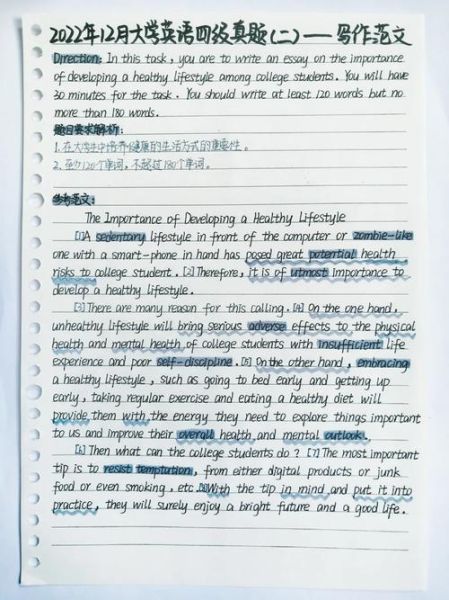 2022年12月大学英语四级真题(二)——写作范文
Direction: In this task, you are to write an essay on the importance
of developing a healthy lifestyle among college students. You will have
30 minutes for the task. You should write at least 120 words but no
more than 180 words.
题目要求解析:
1. 在大学生中培养健康的生活方式的重要性。
2. 至少120个单词, 不超过180个单词。
参考范文:
The Importance of Developing a Healthy Lifestyle
[1] A sedentary lifestyle in front of the computer or zombie-like
one with a smart-phone in hand has posed great potential health
risks to college student. [2] Therefore, it is of utmost importance to
develop a healthy lifestyle.
[3] There are many reason for this calling. [4] On the one hand,
unhealthy lifestyle will bring serious adverse effects to the physical
health and mental health of college students with insufficient life
experience and poor self-discipline. [5] On the other hand, embracing
a healthy lifestyle, such as going to bed early and getting up
early, taking regular exercise and eating a healthy diet will
provide them with the energy they need to explore things important
to us and improve their overall health and mental outlook.
[6] Then what can the college students do? [7] The most important
tip is to resist temptation, from either digital products or junk
food or even smoking. etc. [8] With the tip in mind and put it into
practice, they will surely enjoy a bright future and a good life.